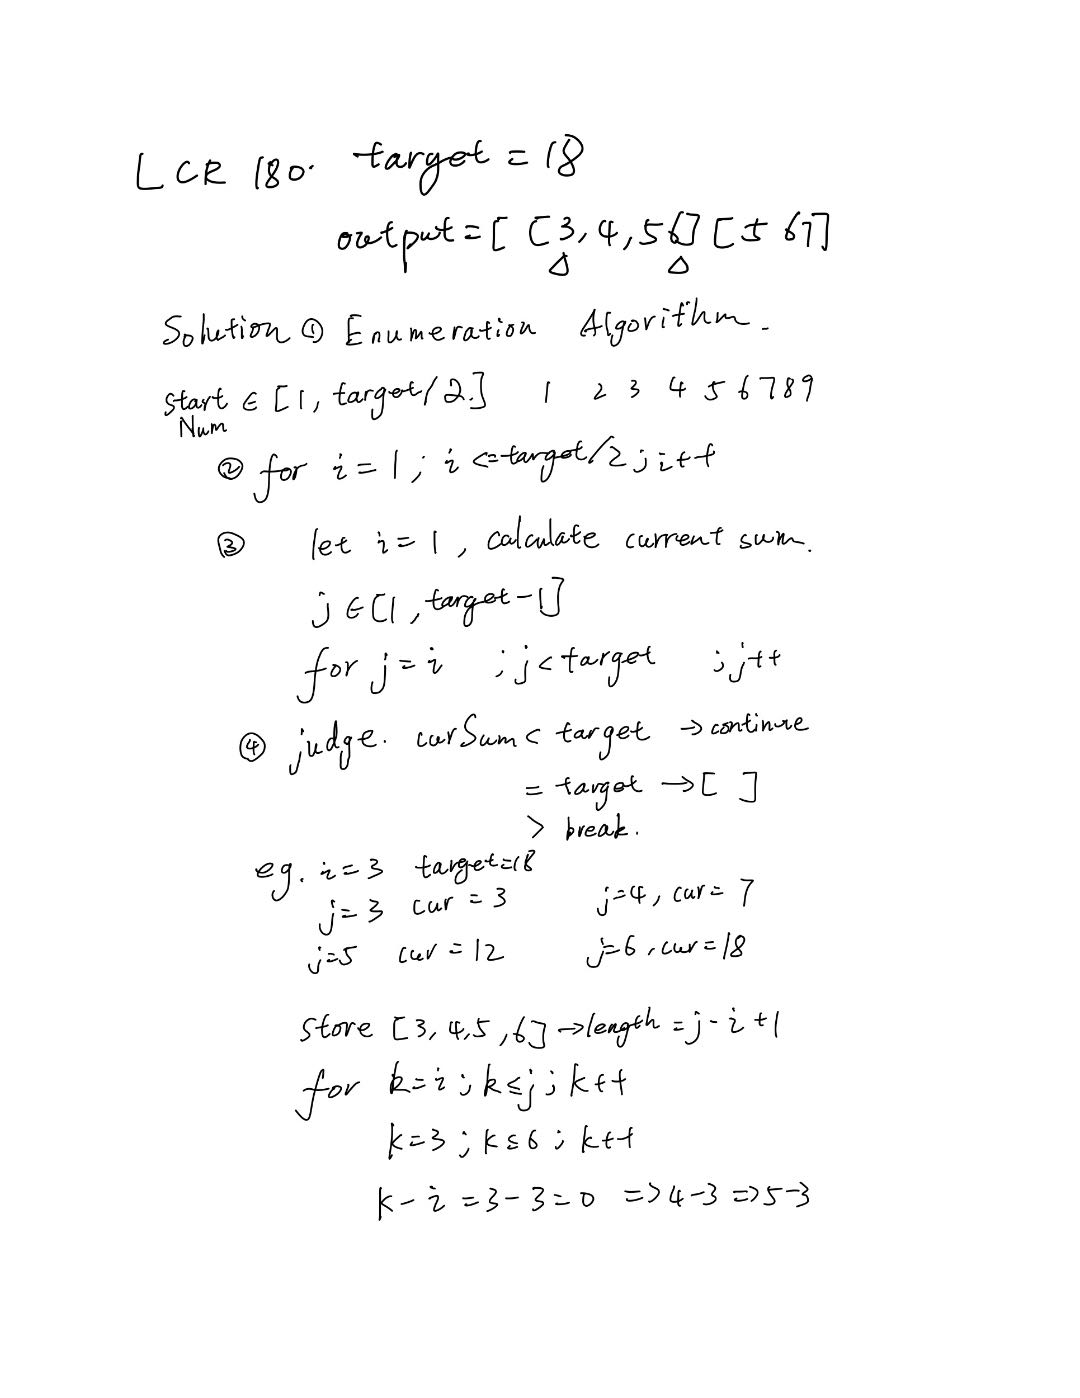 LCR 180. target = 18
output = [ [3, 4, 5 6] [5 6 7]
Solution ① Enumeration Algorithm.
Start ∈ [1, target/2.] 1 2 3 4 5 6 7 8 9
Num
② for i = 1; i <= target/2; i++
③ let i = 1, calculate current sum.
j ∈ [1, target-1]
for j = i ; j < target ; j++
④ judge. curSum < target → continue
= target → [ ]
> break.
eg. i = 3 target=18
j = 3 cur = 3 j=4, cur = 7
j=5 cur = 12 j=6, cur = 18
store [3, 4, 5, 6] → length = j - i + 1
for k = i; k ≤ j; k++
k = 3; k ≤ 6; k++
k - i = 3 - 3 = 0 => 4 - 3 => 5 - 3